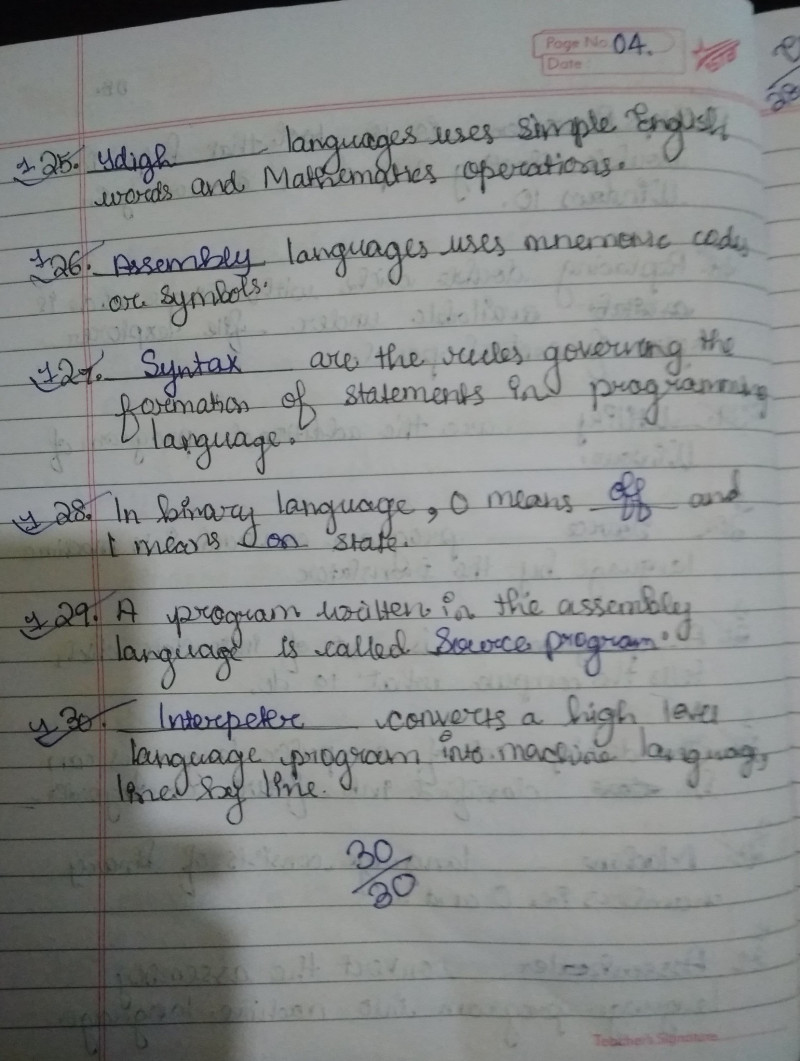 Page No. 04.
Date
1 25. High languages uses simple English
words and Mathematics operations.
1 26. Assembly languages uses mnemonic codes
or symbols.
1 27. Syntax are the rules governing the
formation of statements in programming
language.
1 28. In binary language, 0 means off and
1 means on state.
1 29. A program written in the assembly
language is called Source program.
1 30. Interpeter converts a high level
language program into machine language,
line by line.
30/30
Teacher's Signature